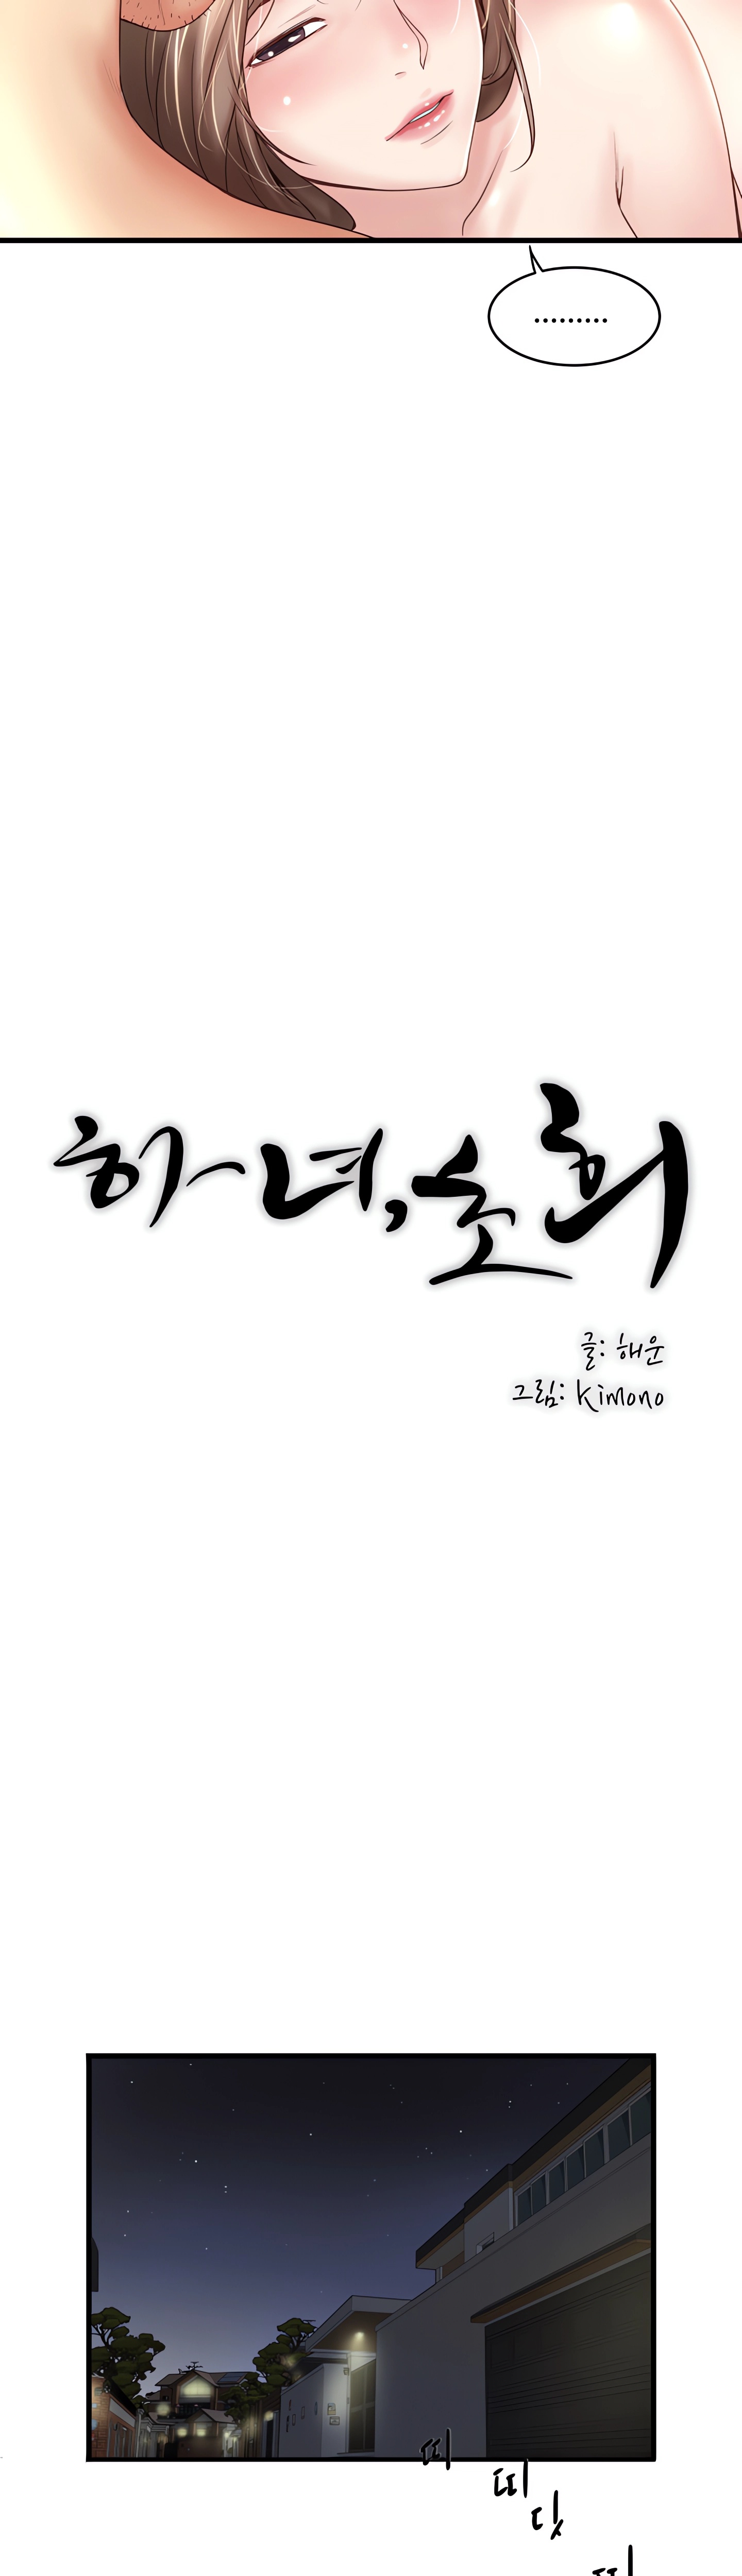 .........
하녀, 소희
글: 해운
그림: Kimono
띠
띠
딧
띠